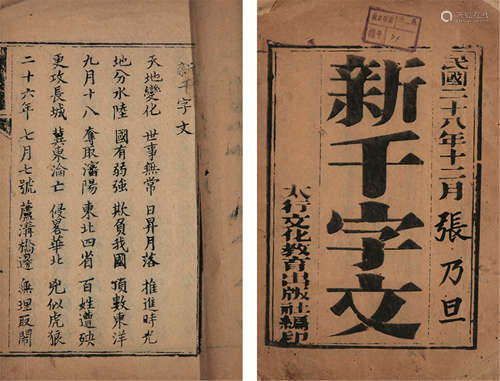 新千字文
天地變化 世事無常 日昇月落 推進時光
地分水陸 國有弱強 欺負我國 頂數東洋
九月十八 奪取瀋陽 東北四省 百姓遭殃
更攻長城 冀東淪亡 侵畧華北 兇似虎狼
二十六年 七月七號 蘆溝橋邊 無理取鬧
民國二十八年十二月 張乃旦
新千字文
太行文化教育出版社編印